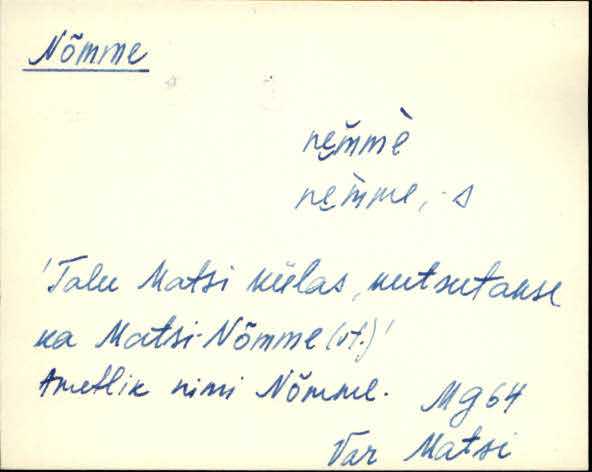 Nõmme
ne̮m̆mè
ne̮m̀me, -s
'Talu Matsi külas, kutsutakse
ka Matsi-Nõmme (vt.)'
Ametlik nimi Nõmme. Mg 64
Var Matsi